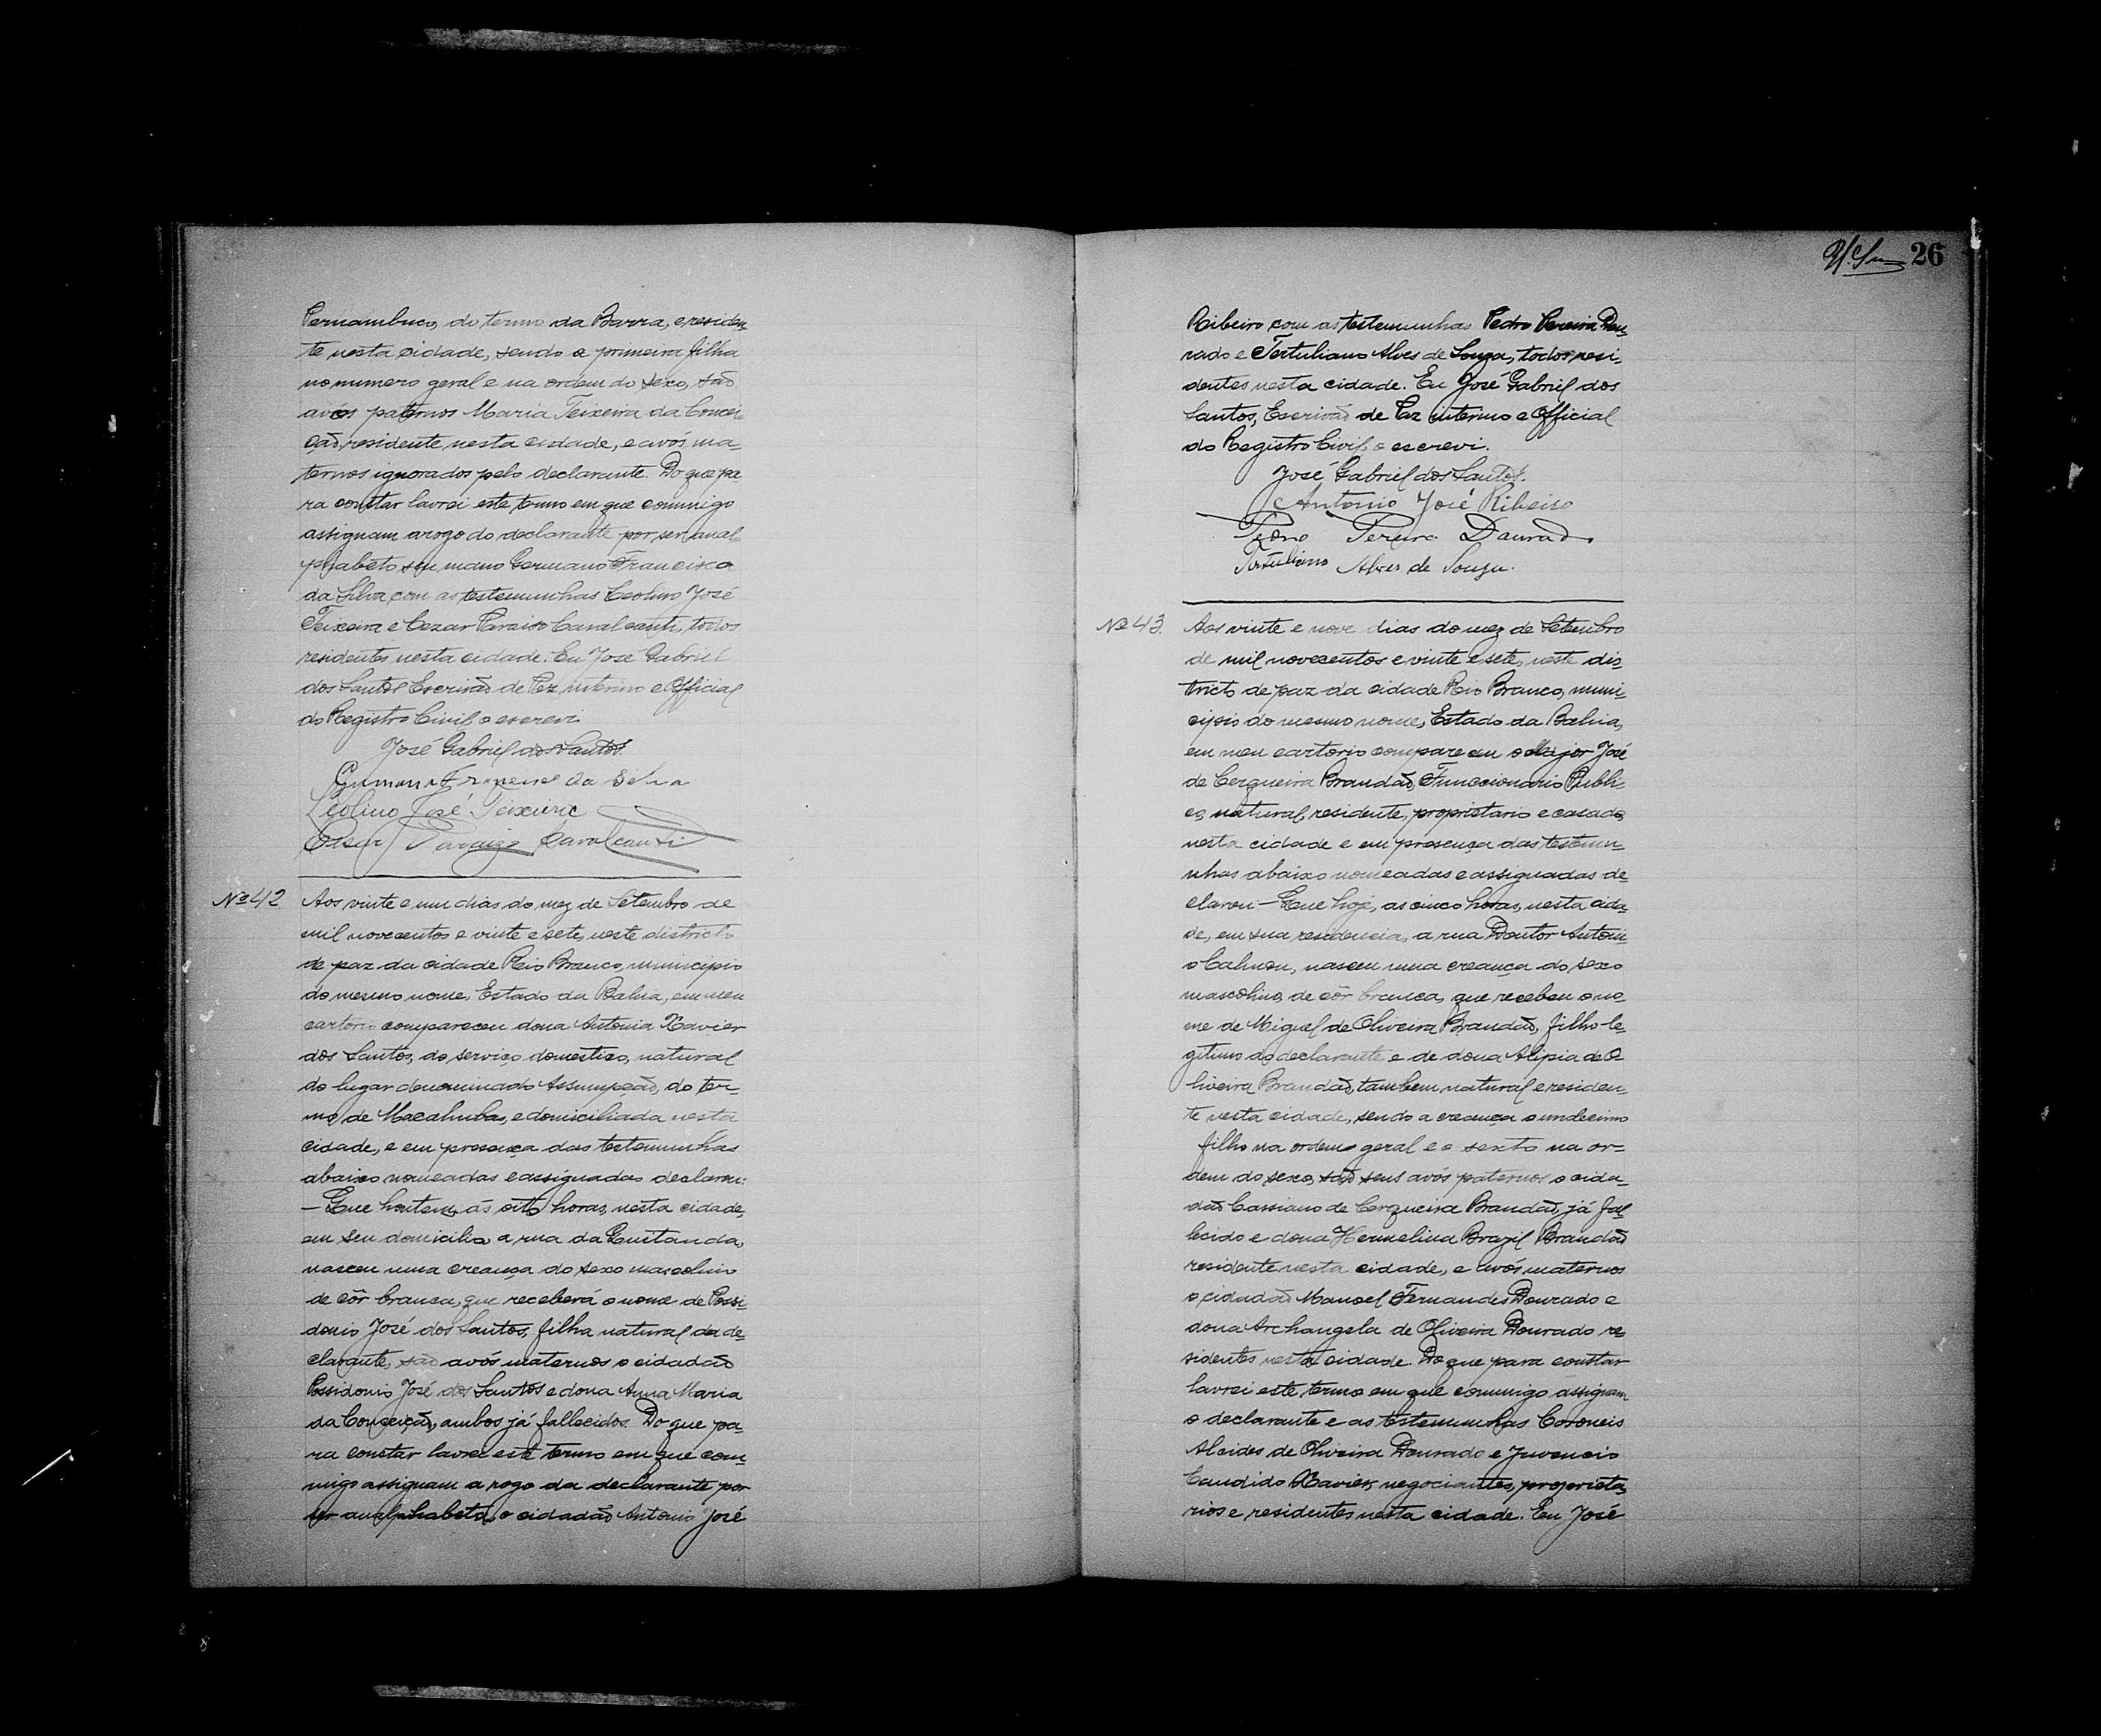 Pernambuco, do termo da Barra, e residen
te nesta cidade, sendo a primeira filha
no numero geral e na ordem do sexo, são
avós paternos Maria Teixeira da Concei
ção, residente nesta cidade, e avós ma-
ternos ignorados pelo declarante. Do que pa-
ra constar lavrei este termo em que commigo
assignam a rogo do declarante por ser anal-
phabeto seu mano Germano Francisco
da Silva, com as testemunhas Leolino José
Teixeira e Cezar Paraiso Cavalcanti, todos
residentes nesta cidade. Eu José Gabriel
dos Santos Escrivão de Paz interino e Official
do Registro Civil o escrevi.
José Gabriel dos Santos
Germano Francisco da Silva
Leolino José Teixeira
Cesar Paraizo Cavalcanti
Nº 42 Aos vinte e um dias do mez de Setembro de
mil novecentos e vinte e sete, neste districto
de paz da cidade Rio Branco, municipio
do mesmo nome, Estado da Bahia, em meu
cartorio compareceu dona Antonia Xavier
dos Santos, do serviço domestico, natural
do lugar denominado Assumpção, do ter-
mo de Macahubas, e domiciliada nesta
cidade, e em presença das testemunhas
abaixo nomeadas e assignadas declarou:
- Que hontem, ás oito horas, nesta cidade,
em seu domicilio a rua da Quitanda,
nasceu uma creança do sexo masculino
de côr branca, que receberá o nome de Possi-
donio José dos Santos, filha natural da de-
clarante, são avós maternos o cidadão
Possidonio José dos Santos e dona Anna Maria
da Conceição, ambos já fallecidos. Do que pa-
ra constar lavrei este termo em que com-
migo assignam a rogo da declarante por
ser analphabeta, o cidadão Antonio José
26
Ribeiro com as testemunhas Pedro Pereira Dou-
rado e Tertuliano Alves de Souza, todos resi-
dentes nesta cidade. Eu José Gabriel dos
Santos, Escrivão de Paz interino e Official
do Registro Civil, o escrevi.
José Gabriel dos Santos.
Antonio José Ribeiro
Pedro Pereira Daurado
Tertuliano Alves de Souza.
Nº 43. Aos vinte e nove dias do mez de Setembro
de mil novecentos e vinte e sete, neste dis-
tricto de paz da cidade Rio Branco, muni-
cipio do mesmo nome, Estado da Bahia,
em meu cartorio compareceu o Major José
de Cerqueira Brandão, Funccionario Publi-
co, natural, residente, proprietario e casado,
nesta cidade e em presença das testemu-
nhas abaixo nomeadas e assignadas de-
clarou:- Que hoje, as cinco horas, nesta cida-
de, em sua residencia, a rua Doutor Antoni-
o Calmon, nasceu uma creança do sexo
masculino, de côr branca, que recebeu o no-
me de Miguel de Oliveira Brandão, filho le-
gitimo do declarante e de dona Alipia de O-
liveira Brandão, tambem natural e residen-
te nesta cidade, sendo a creança o undecimo
filho na ordem geral e o sexto na or-
dem do sexo, são seus avós paternos o cida-
dão Cassiano de Cerqueira Brandão, já fal-
lecido e dona Hermelina Brazil Brandão
residente nesta cidade, e avós maternos
o cidadão Manoel Fernandes Dourado e
dona Archangela de Oliveira Dourado re-
sidentes nesta cidade. Do que para constar
lavrei este termo em que commigo assignam
o declarante e as testemunhas Coroneis
Alcides de Oliveira Dourado e Juvencio
Candido Xavier, negociantes, proprieta-
rios e residentes nesta cidade. Eu José